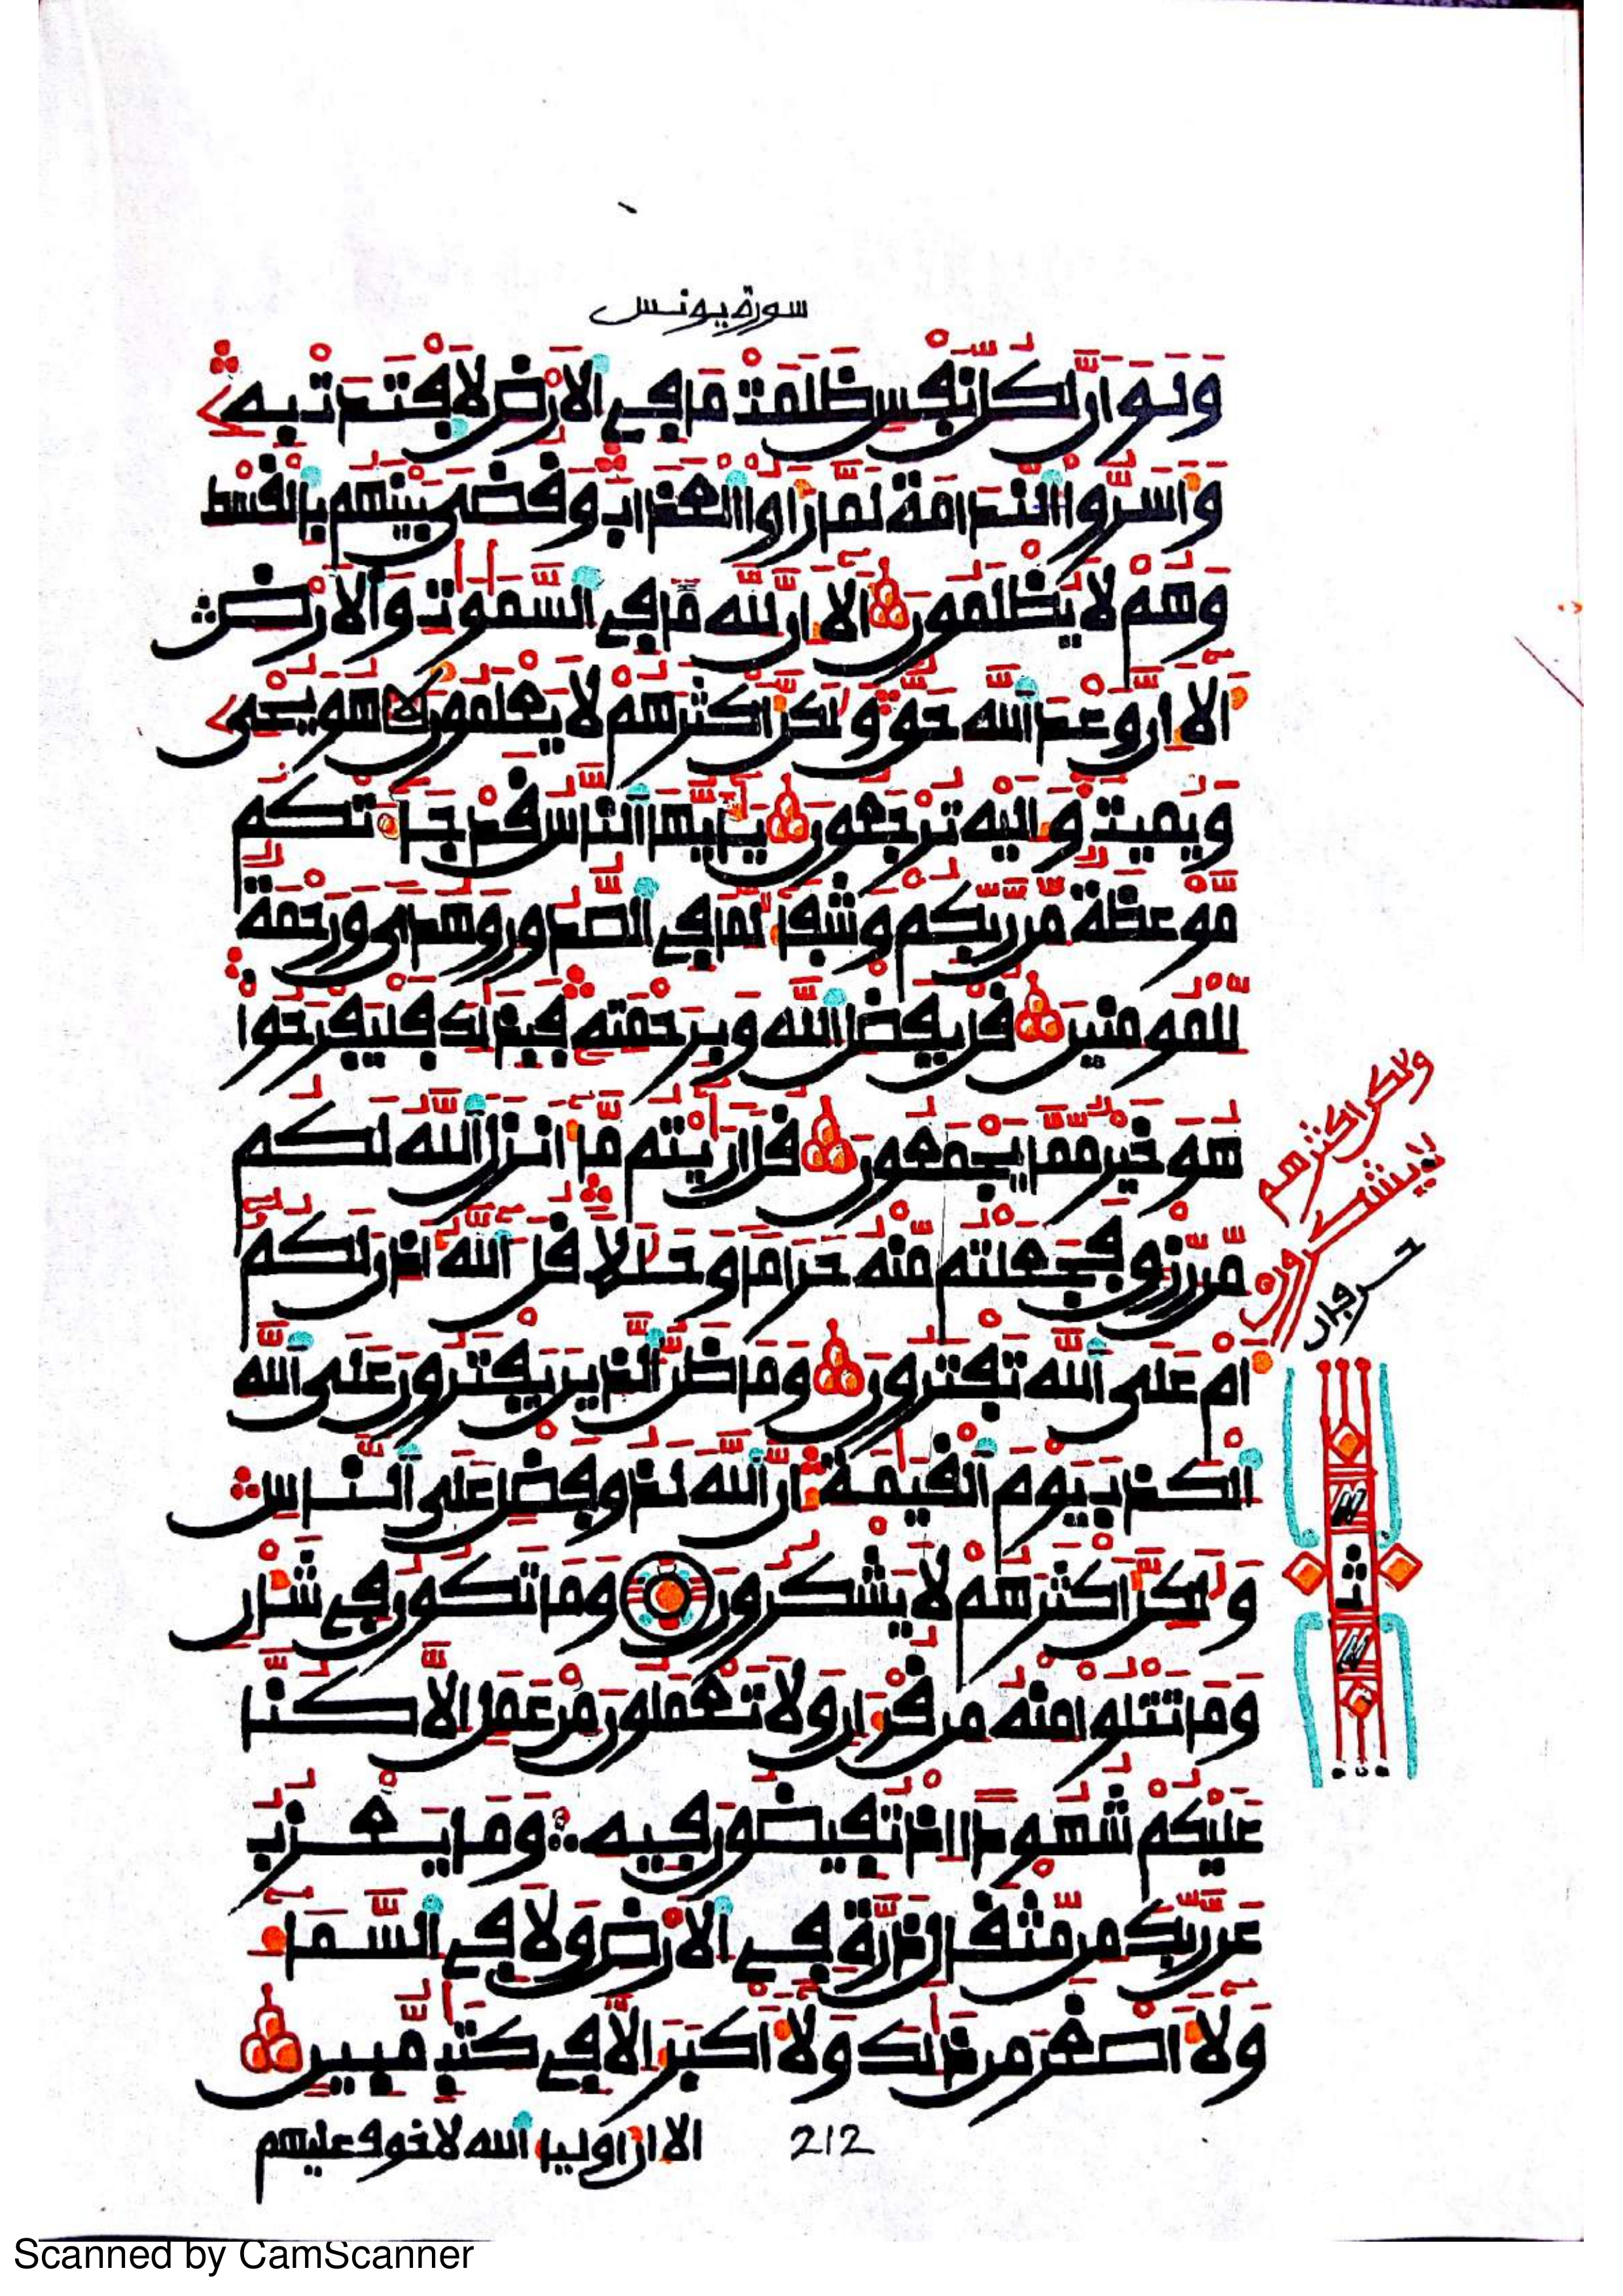 سورة يونس
وَلَوَ اَنَّ لِكُلِّ نَفْسٖ ظَلَمَتْ مَا فِے اِ۬لَارْضِ لَافْتَدَتْ بِهِۦ
وَأَسَرُّواْ اُ۬لنَّدَامَةَ لَمَّا رَأَوُاْ اُ۬لْعَذَابَ وَقُضِيَ بَيْنَهُم بِالْقِسْطِ
وَهُمْ لَا يُظْلَمُونَ أَلَا إِنَّ لِلهِ مَا فِے اِ۬لسَّمَٰوَٰتِ وَالَارْضِ
أَلَا إِنَّ وَعْدَ اَ۬للَّهِ حَقّٞ وَلَٰكِنَّ أَكْثَرَهُمْ لَا يَعْلَمُونَ هُوَ يُحْيِۦ
وَيُمِيتُ وَإِلَيْهِ تُرْجَعُونَ يَٰأَيُّهَا اَ۬لنَّاسُ قَدْ جَآءَتْكُم
مَّوْعِظَةٞ مِّن رَّبِّكُمْ وَشِفَآءٞ لِّمَا فِے اِ۬لصُّدُورِ وَهُديٗ وَرَحْمَةٞ
لِّلْمُومِنِينَ قُلْ بِفَضْلِ اِ۬للَّهِ وَبِرَحْمَتِهِۦ فَبِذَٰلِكَ فَلْيَفْرَحُواْ
هُوَ خَيْرٞ مِّمَّا يَجْمَعُونَ قُلَ اَرَٰيْتُم مَّا أَنزَلَ اَ۬للَّهُ لَكُم
مِّن رِّزْقٖ فَجَعَلْتُم مِّنْهُ حَرَاماٗ وَحَلَٰلاٗ قُلَ آللَّهُ أَذِنَ لَكُمُ
أَمْ عَلَي اَ۬للَّهِ تَفْتَرُونَ وَمَا ظَنُّ اُ۬لذِينَ يَفْتَرُونَ عَلَي اَ۬للَّهِ
اِ۬لْكَذِبَ يَوْمَ اَ۬لْقِيَٰمَةِ إِنَّ اَ۬للَّهَ لَذُو فَضْلٍ عَلَي اَ۬لنَّاسِ
وَلَٰكِنَّ أَكْثَرَهُمْ لَا يَشْكُرُونَ وَمَا تَكُونُ فِے شَأْنٖ
وَمَا تَتْلُواْ مِنْهُ مِن قُرْءَانٖ وَلَا تَعْمَلُونَ مِنْ عَمَلٍ اِلَّا كُنَّا
عَلَيْكُمْ شُهُوداً اِذْ تُفِيضُونَ فِيهِ وَمَا يَعْزُبُ
عَن رَّبِّكَ مِن مِّثْقَالِ ذَرَّةٖ فِے اِ۬لَارْضِ وَلَا فِے اِ۬لسَّمَآءِ
وَلَا أَصْغَرَ مِن ذَٰلِكَ وَلَا أَكْبَرَ إِلَّا فِے كِتَٰبٖ مُّبِينٍ
الا ان اوليا الله لا خوف عليهم
212
ولكن اكثرهم
لا يشكرون
Scanned by CamScanner